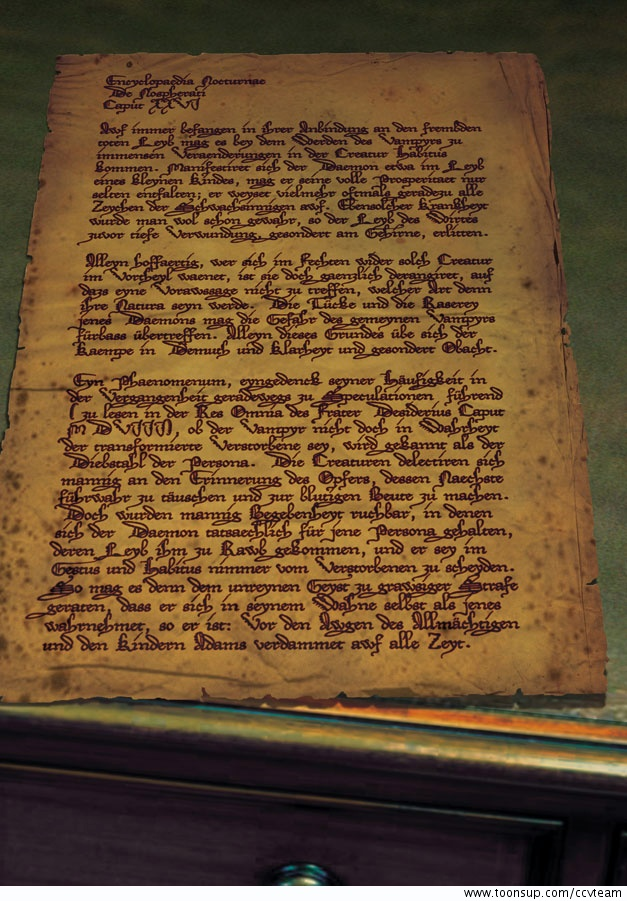 Encyclopaedia Nocturnae
De Nospherati
Caput XXVI
Awf immer befangen in ihrer Anbindung an den frembden
toten Leyb mag es bey dem Werden des Vampyrs zu
immensen Veraenderungen in der Creatur Habitus
kommen. Manifestiret sich der Daemon etwa im Leyb
eines kleynen Kindes, mag er seine volle Prosperitaet nur
selten entfalten; er weyset vielmehr oftmals geradezu alle
Zeychen der Schwachsinnigen awf. Ebensolcher Krankheyt
wurde man wol schon gewahr, so der Leyb des Wirtes
zuvor tiefe Verwundung, gesondert am Gehirne, erlitten.
Alleyn hoffaertig, wer sich im Fechten wider solch Creatur
im Vortheyl waenet, ist sie doch gaenzlich derangiret, auf
dazs eyne Vorawssage nicht zu treffen, welcher Art denn
ihre Natura seyn werde. Die Tücke und die Raserey
jenes Daemons mag die Gefahr des gemeynen Vampyrs
fürbass übertreffen. Alleyn dieses Grundes übe sich der
Kaempe in Demuth und Klarheyt und gesondert Obacht.
Eyn Phaenomenum, eyngedenck seyner Häufigkeit in
der Vergangenheit geradewegs zu Speculationen führend
(zu lesen in der Res Omnia des Frater Desiderius Caput
MDVIII), ob der Vampyr nicht doch in Wahrheyt
der transformierte Verstorbene sey, wird gekannt als der
Diebstahl der Persona. Die Creaturen delectiren sich
mannig an den Erinnerung des Opfers, dessen Naechste
führwahr zu täuschen und zur blutigen Beute zu machen.
Doch wurden mannig Begebenheyt ruchbar, in denen
sich der Daemon tatsaechlich für jene Persona gehalten,
deren Leyb ihm zu Rawb gekommen, und er sey im
Gestus und Habitus nimmer vom Verstorbenen zu scheyden.
So mag es denn dem unreynen Geyst zu grawsiger Strafe
geraten, dass er sich in seynem Wahne selbst als jenes
wahrnehmet, so er ist: Vor den Awgen des Allmächtigen
und den Kindern Adams verdammet awf alle Zeyt.
www.toonsup.com/ccvteam